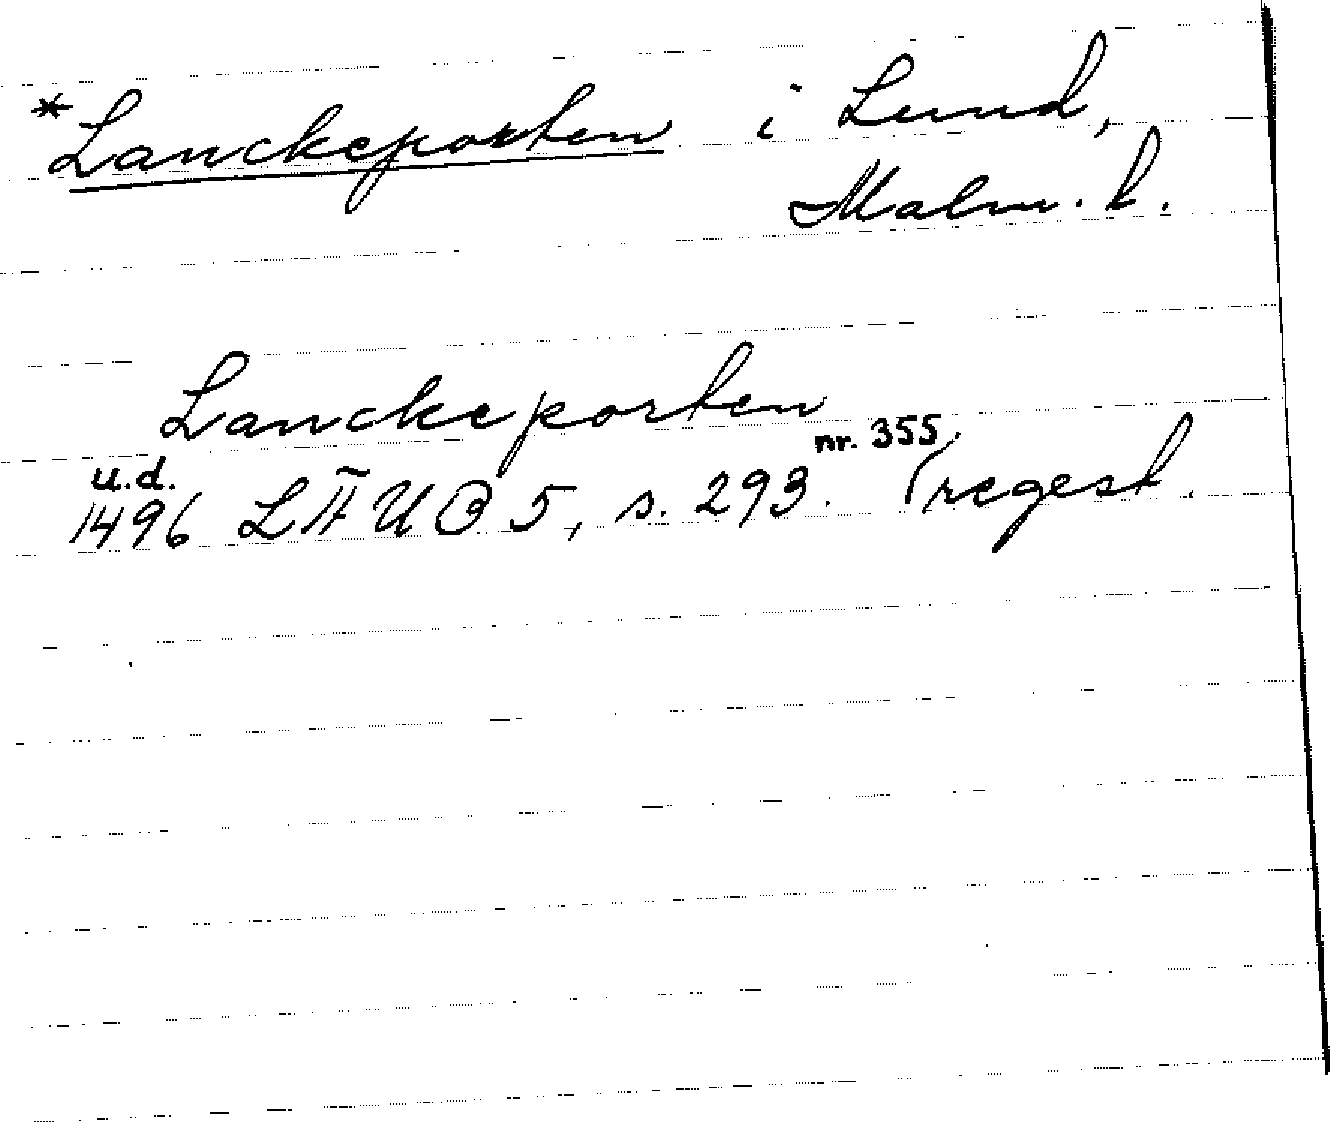 *Lanckeporten i Lund,
Malm. l.
Lanckeporten
u.d. nr. 355
1496 LÄUB 5, s. 293. (regest.